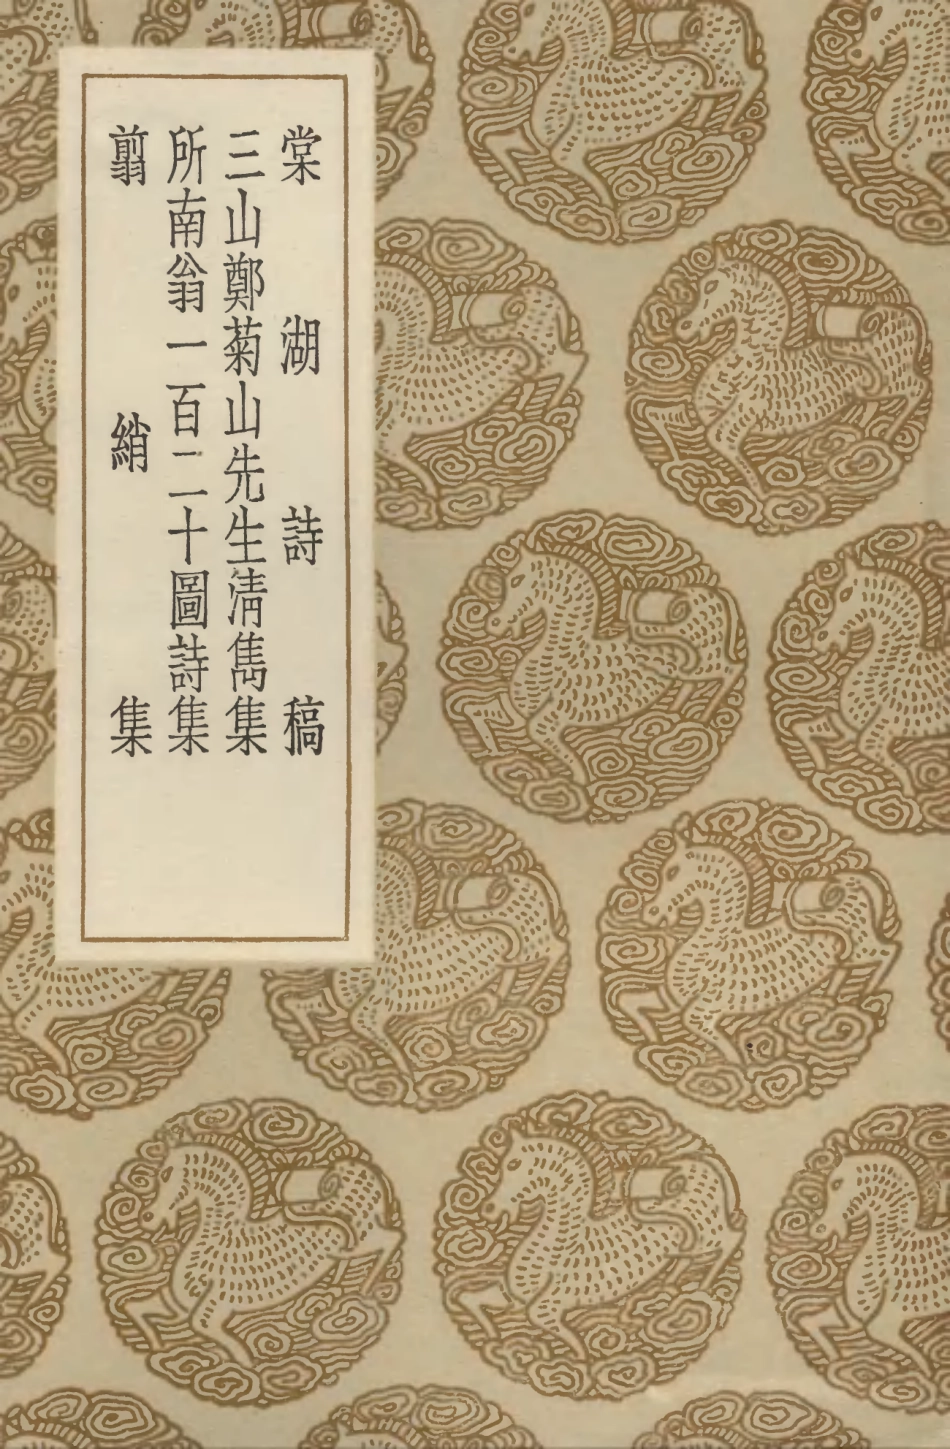 棠湖詩稿
三山鄭菊山先生清雋集
所南翁一百二十圖詩集
翦綃集